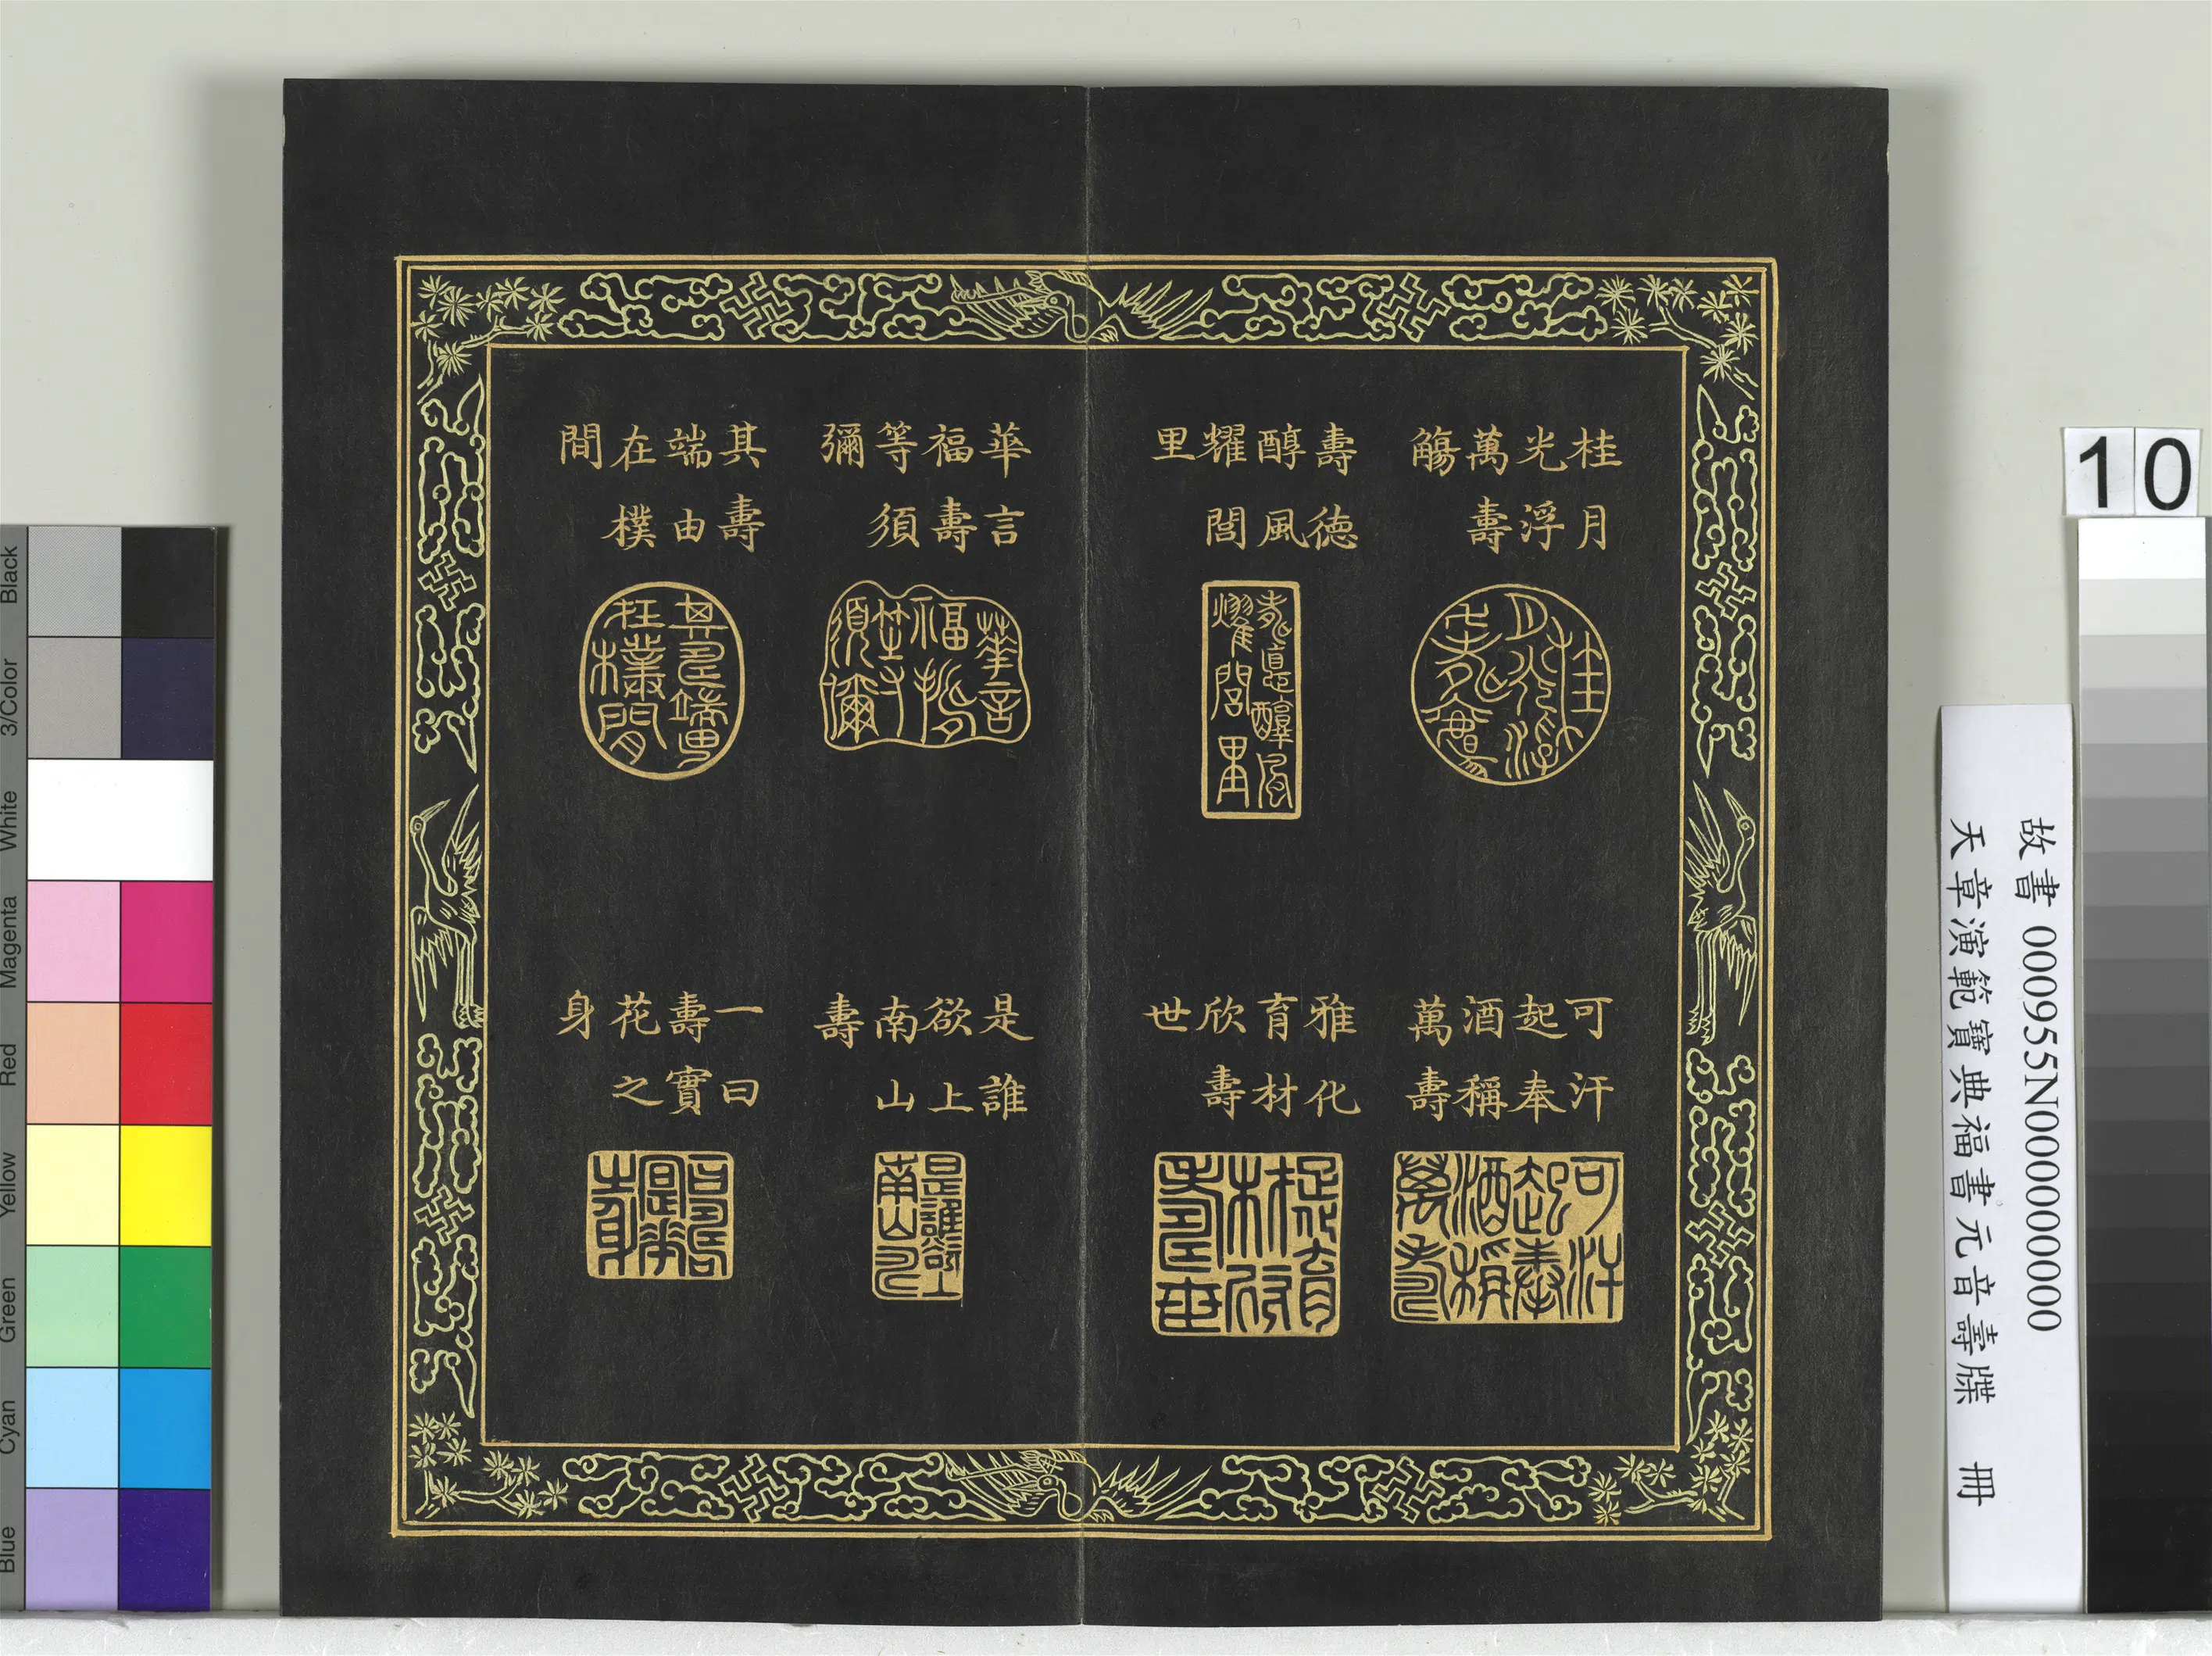 桂月
光浮
萬壽
觴
壽德
醇風
耀閭
里
華言
福壽
等須
彌
其壽
端由
在樸
間
可汗
起奉
酒稱
萬壽
雅化
育材
欣壽
世
是誰
欲上
南山
壽
一曰
壽實
花之
身
10
故書 000955N000000000
天章演範寶典福書元音壽牒 冊
Black
3/Color
White
Magenta
Red
Yellow
Green
Cyan
Blue